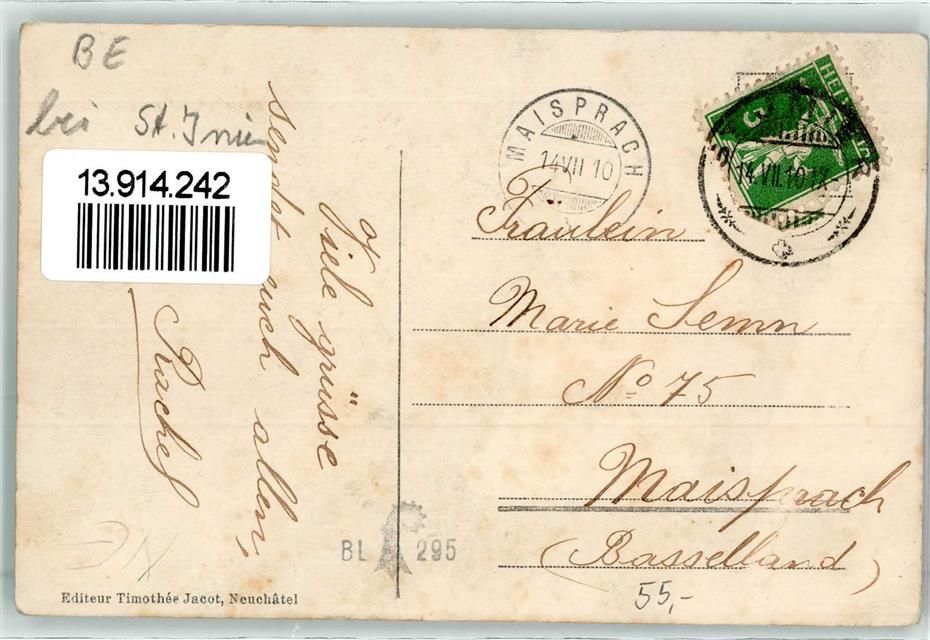 BE
bei St. Imier
13.914.242
Viele grüsse
sendet euch allen,
Rachel
MAISPRACH
14 VII 10
HELVETIA
5
14.VII.10
Fräulein
Marie Semn
No 75
Maisprach
(Basselland)
55,-
BL 295
Editeur Timothée Jacot, Neuchâtel